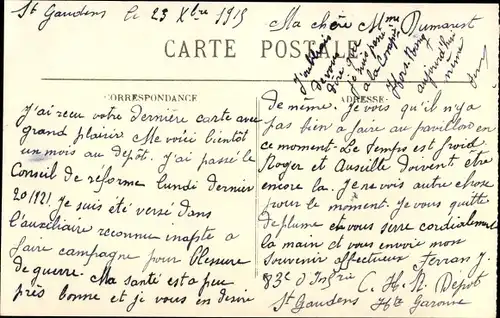 St Gaudens le 23 Xbre 1915
Ma chère Mme Dumarest
CARTE POSTALE
J'oubliais
de vous
dire que
je suis passé
à la Compie
Hors Rang
aujourd'hui
même
CORRESPONDANCE
J'ai reçu votre dernière carte avec
grand plaisir Me voici bientôt
un mois au dépôt. J'ai passé le
Conseil de réforme lundi dernier
20/921. Je suis été versé dans
l'auxiliaire reconnu inapte à
faire campagne pour blessure
de guerre. Ma santé est a peu
près bonne et je vous en désire
ADRESSE
de même. Je vois qu'il n'y a
pas bien a faire au pavillon en
ce moment. Le Temps est froid
Roger et Auseille doivent être
encore la. Je ne vois autre chose
pour le moment. Je vous quitte
de plume et vous serre cordialement
la main et vous envoie mon
souvenir affectueux Ferran J.
83e d'Infrie C. H. R. Dépôt
St Gaudens Hte Garonne